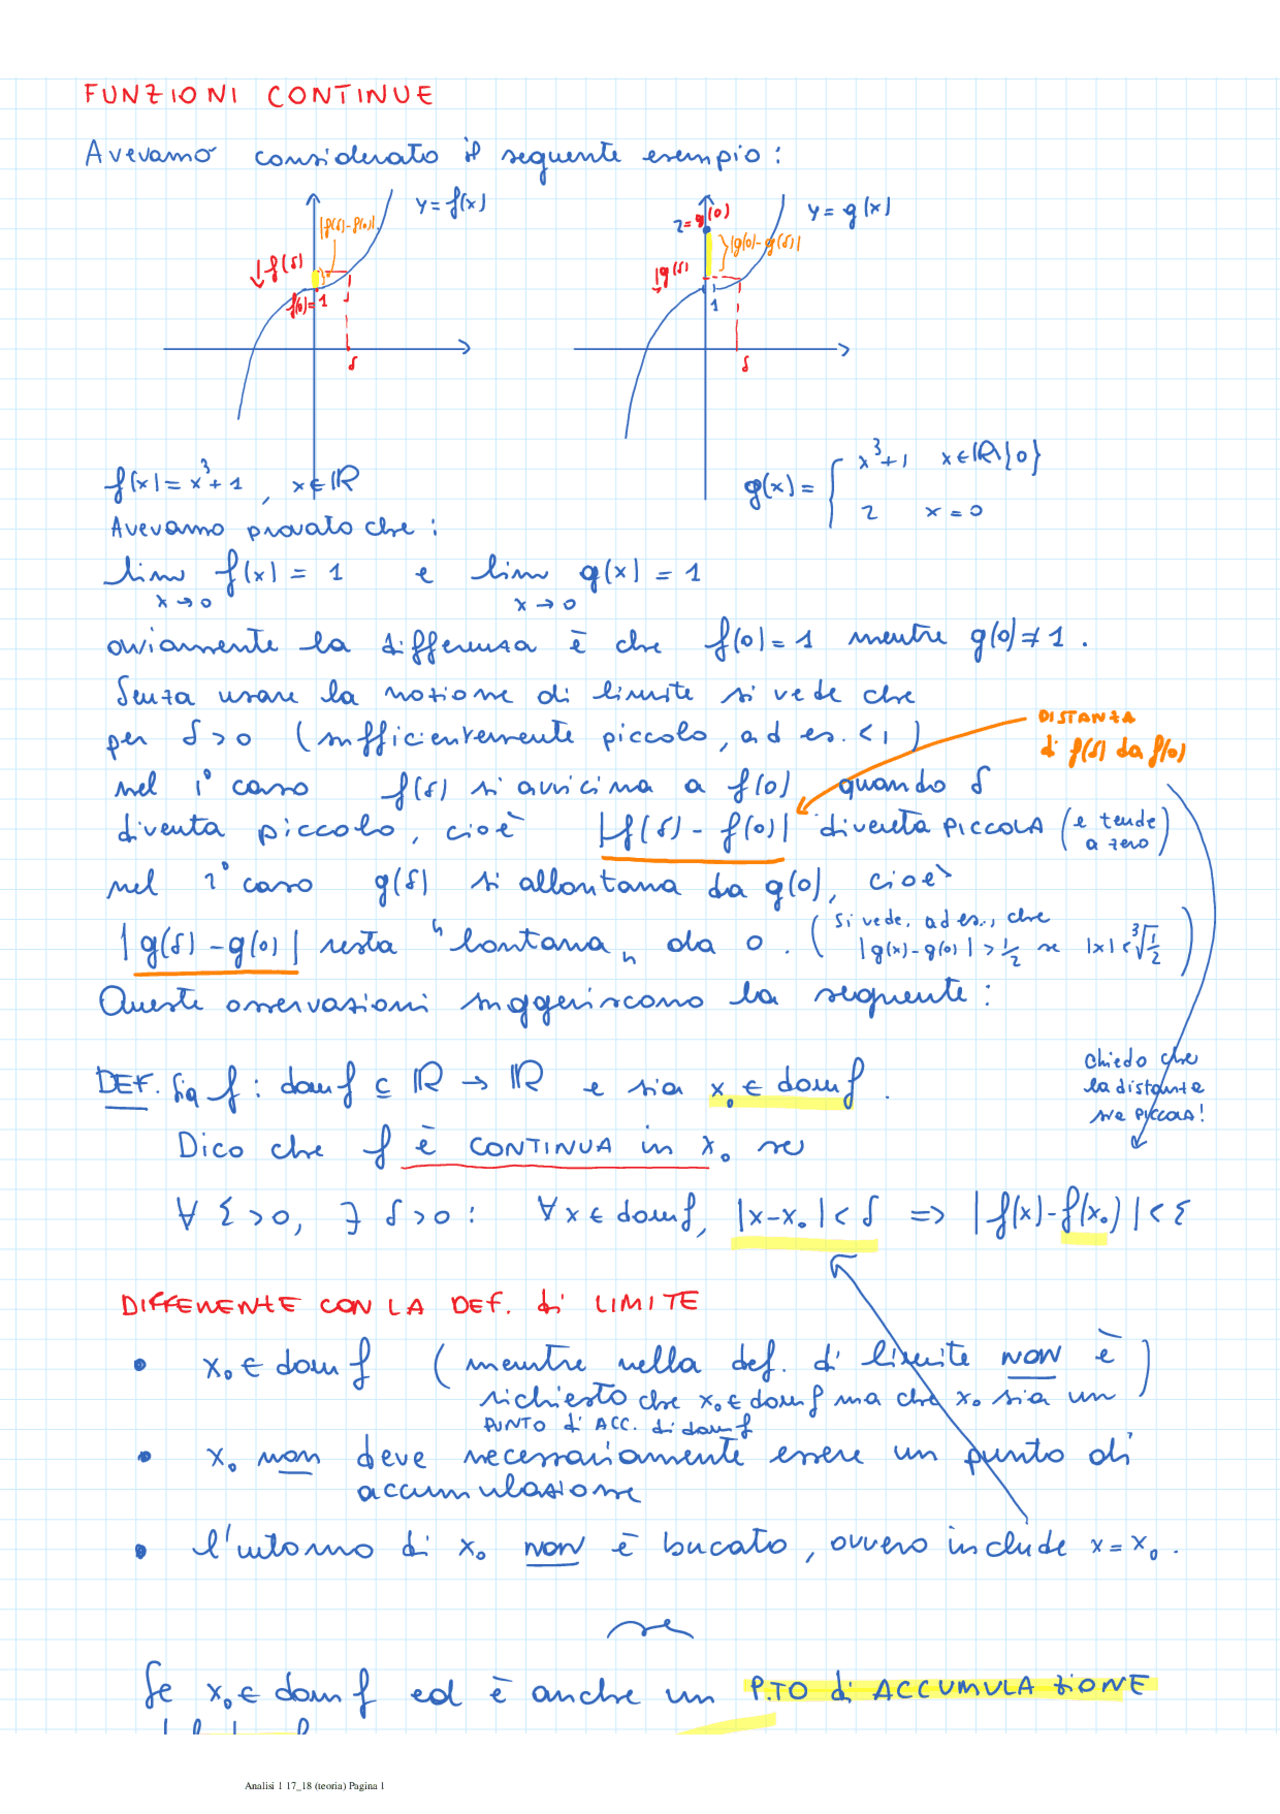 FUNZIONI CONTINUE
Avevamo considerato il seguente esempio:
|f(δ)-f(0)|
y=f(x)
↓f(δ)
f(0)=1
δ
2=g(0)
y=g(x)
}|g(0)-g(δ)|
↓g(δ)
1
δ
f(x)=x³+1, x∈ℝ
g(x)= { x³+1 x∈ℝ\{0}
2 x=0
Avevamo provato che:
lim f(x)=1 e lim g(x)=1
x→0 x→0
ovviamente la differenza è che f(0)=1 mentre g(0)≠1.
Senza usare la nozione di limite si vede che
per δ>0 (sufficientemente piccolo, ad es. <1)
DISTANZA
di f(δ) da f(0)
nel 1° caso f(δ) si avvicina a f(0) quando δ
diventa piccolo, cioè |f(δ)-f(0)| diventa PICCOLA (e tende a zero)
nel 2° caso g(δ) si allontana da g(0), cioè
|g(δ)-g(0)| resta "lontana" da 0. (si vede, ad es., che |g(x)-g(0)|>1/2 se |x|<∛1/2)
Queste osservazioni suggeriscono la seguente:
chiedo che
la distanza
sia PICCOLA!
DEF. Sia f: domf ⊆ ℝ → ℝ e sia x₀ ∈ domf.
Dico che f è CONTINUA in x₀ se
∀ ε>0, ∃ δ>0: ∀x∈domf, |x-x₀|<δ => |f(x)-f(x₀)|<ε
DIFFERENTE CON LA DEF. di LIMITE
• x₀∈domf (mentre nella def. di limite NON è
richiesto che x₀∈domf ma che x₀ sia un
PUNTO di ACC. di domf)
• x₀ non deve necessariamente essere un punto di
accumulazione
• l'intorno di x₀ NON è bucato, ovvero include x=x₀.
Se x₀∈domf ed è anche un P.TO di ACCUMULAZIONE
Analisi 1 17_18 (teoria) Pagina 1